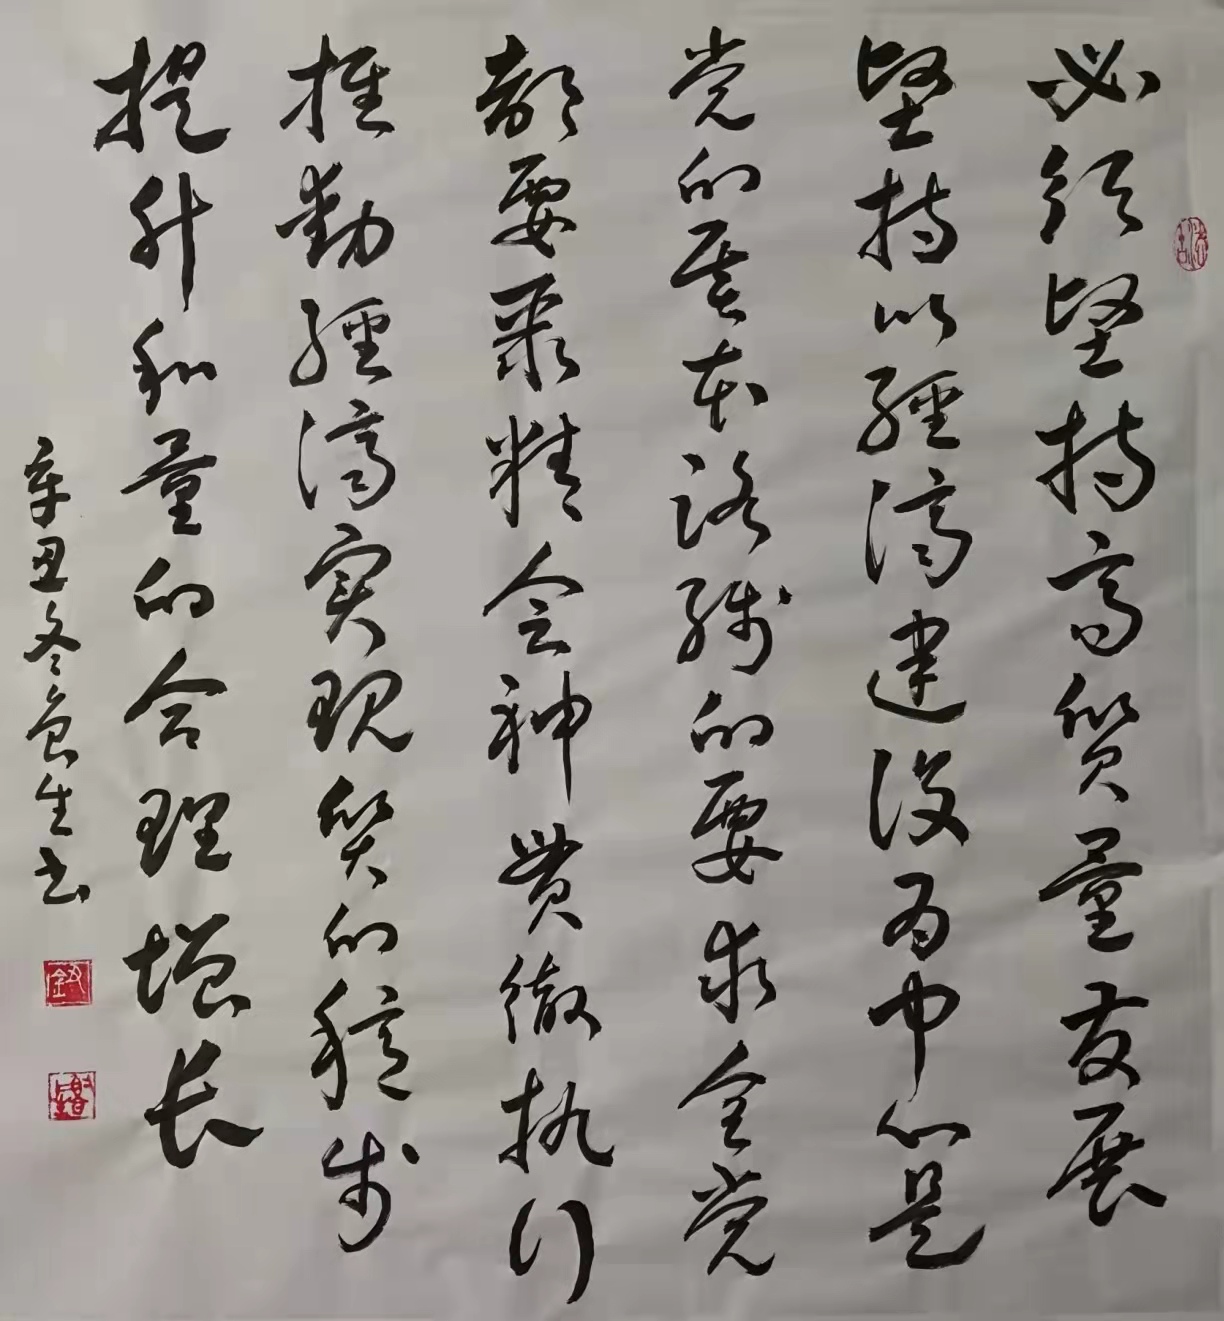 必须坚持高质量发展
坚持以经济建设为中心是
党的基本路线的要求全党
都要聚精会神贯彻执行
推动经济实现质的稳步
提升和量的合理增长
辛丑冬 生书